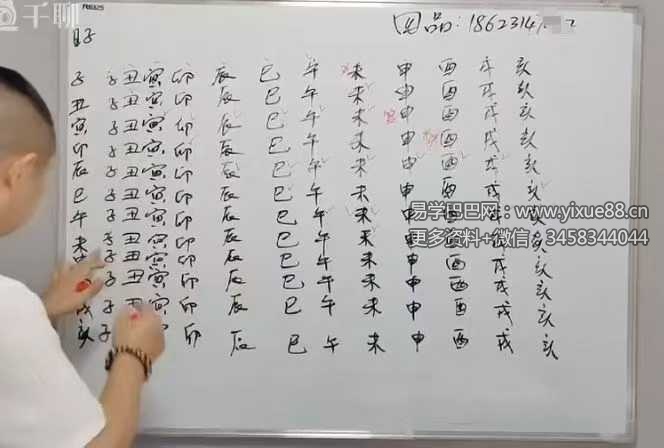 千聊
子 子 丑 寅 卯 辰 巳 午 未 申 酉 戌 亥
丑 子 丑 寅 卯 辰 巳 午 未 申 酉 戌 亥
寅 子 丑 寅 卯 辰 巳 午 未 申 酉 戌 亥
卯 子 丑 寅 卯 辰 巳 午 未 申 酉 戌 亥
辰 子 丑 寅 卯 辰 巳 午 未 申 酉 戌 亥
巳 子 丑 寅 卯 辰 巳 午 未 申 酉 戌 亥
午 子 丑 寅 卯 辰 巳 午 未 申 酉 戌 亥
未 子 丑 寅 卯 辰 巳 午 未 申 酉 戌 亥
子 丑 寅 卯 辰 巳 午 未 申 酉 戌 亥
子 丑 寅 卯 辰 巳 午 未 申 酉 戌 亥
戌 子 丑 寅 卯 辰 巳 午 未 申 酉 戌 亥
亥 子 卯 辰 巳 午 未 申 酉 戌 亥
易学巴巴网：www.yixue88.cn
更多资料+微信：3458344044